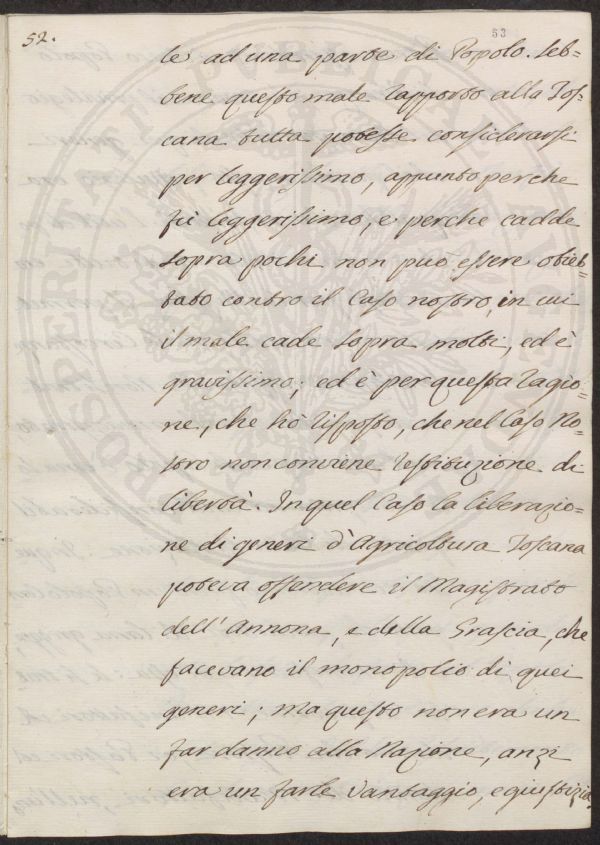 52.
53
le ad una parte di Popolo. Seb=
bene questo male rapporto alla Tos=
cana tutta potesse considerarsi
per leggerissimo, appunto perche
fù leggerissimo, e perche cadde
sopra pochi non può essere obiet=
tato contro il Caso nostro, in cui
il male cade sopra molti, ed è
gravissimo; ed è per questa ragio=
ne, che hò risposto, che nel Caso No=
stro non conviene restituzione di
libertà. In quel Caso la liberazio=
ne di generi d'Agricoltura Toscana
poteva offendere il Magistrato
dell'Annona, e della Grascia, che
facevano il monopolio di quei
generi; ma questo non era un
far danno alla Nazione, anzi
era un farle vantaggio, e giustizia